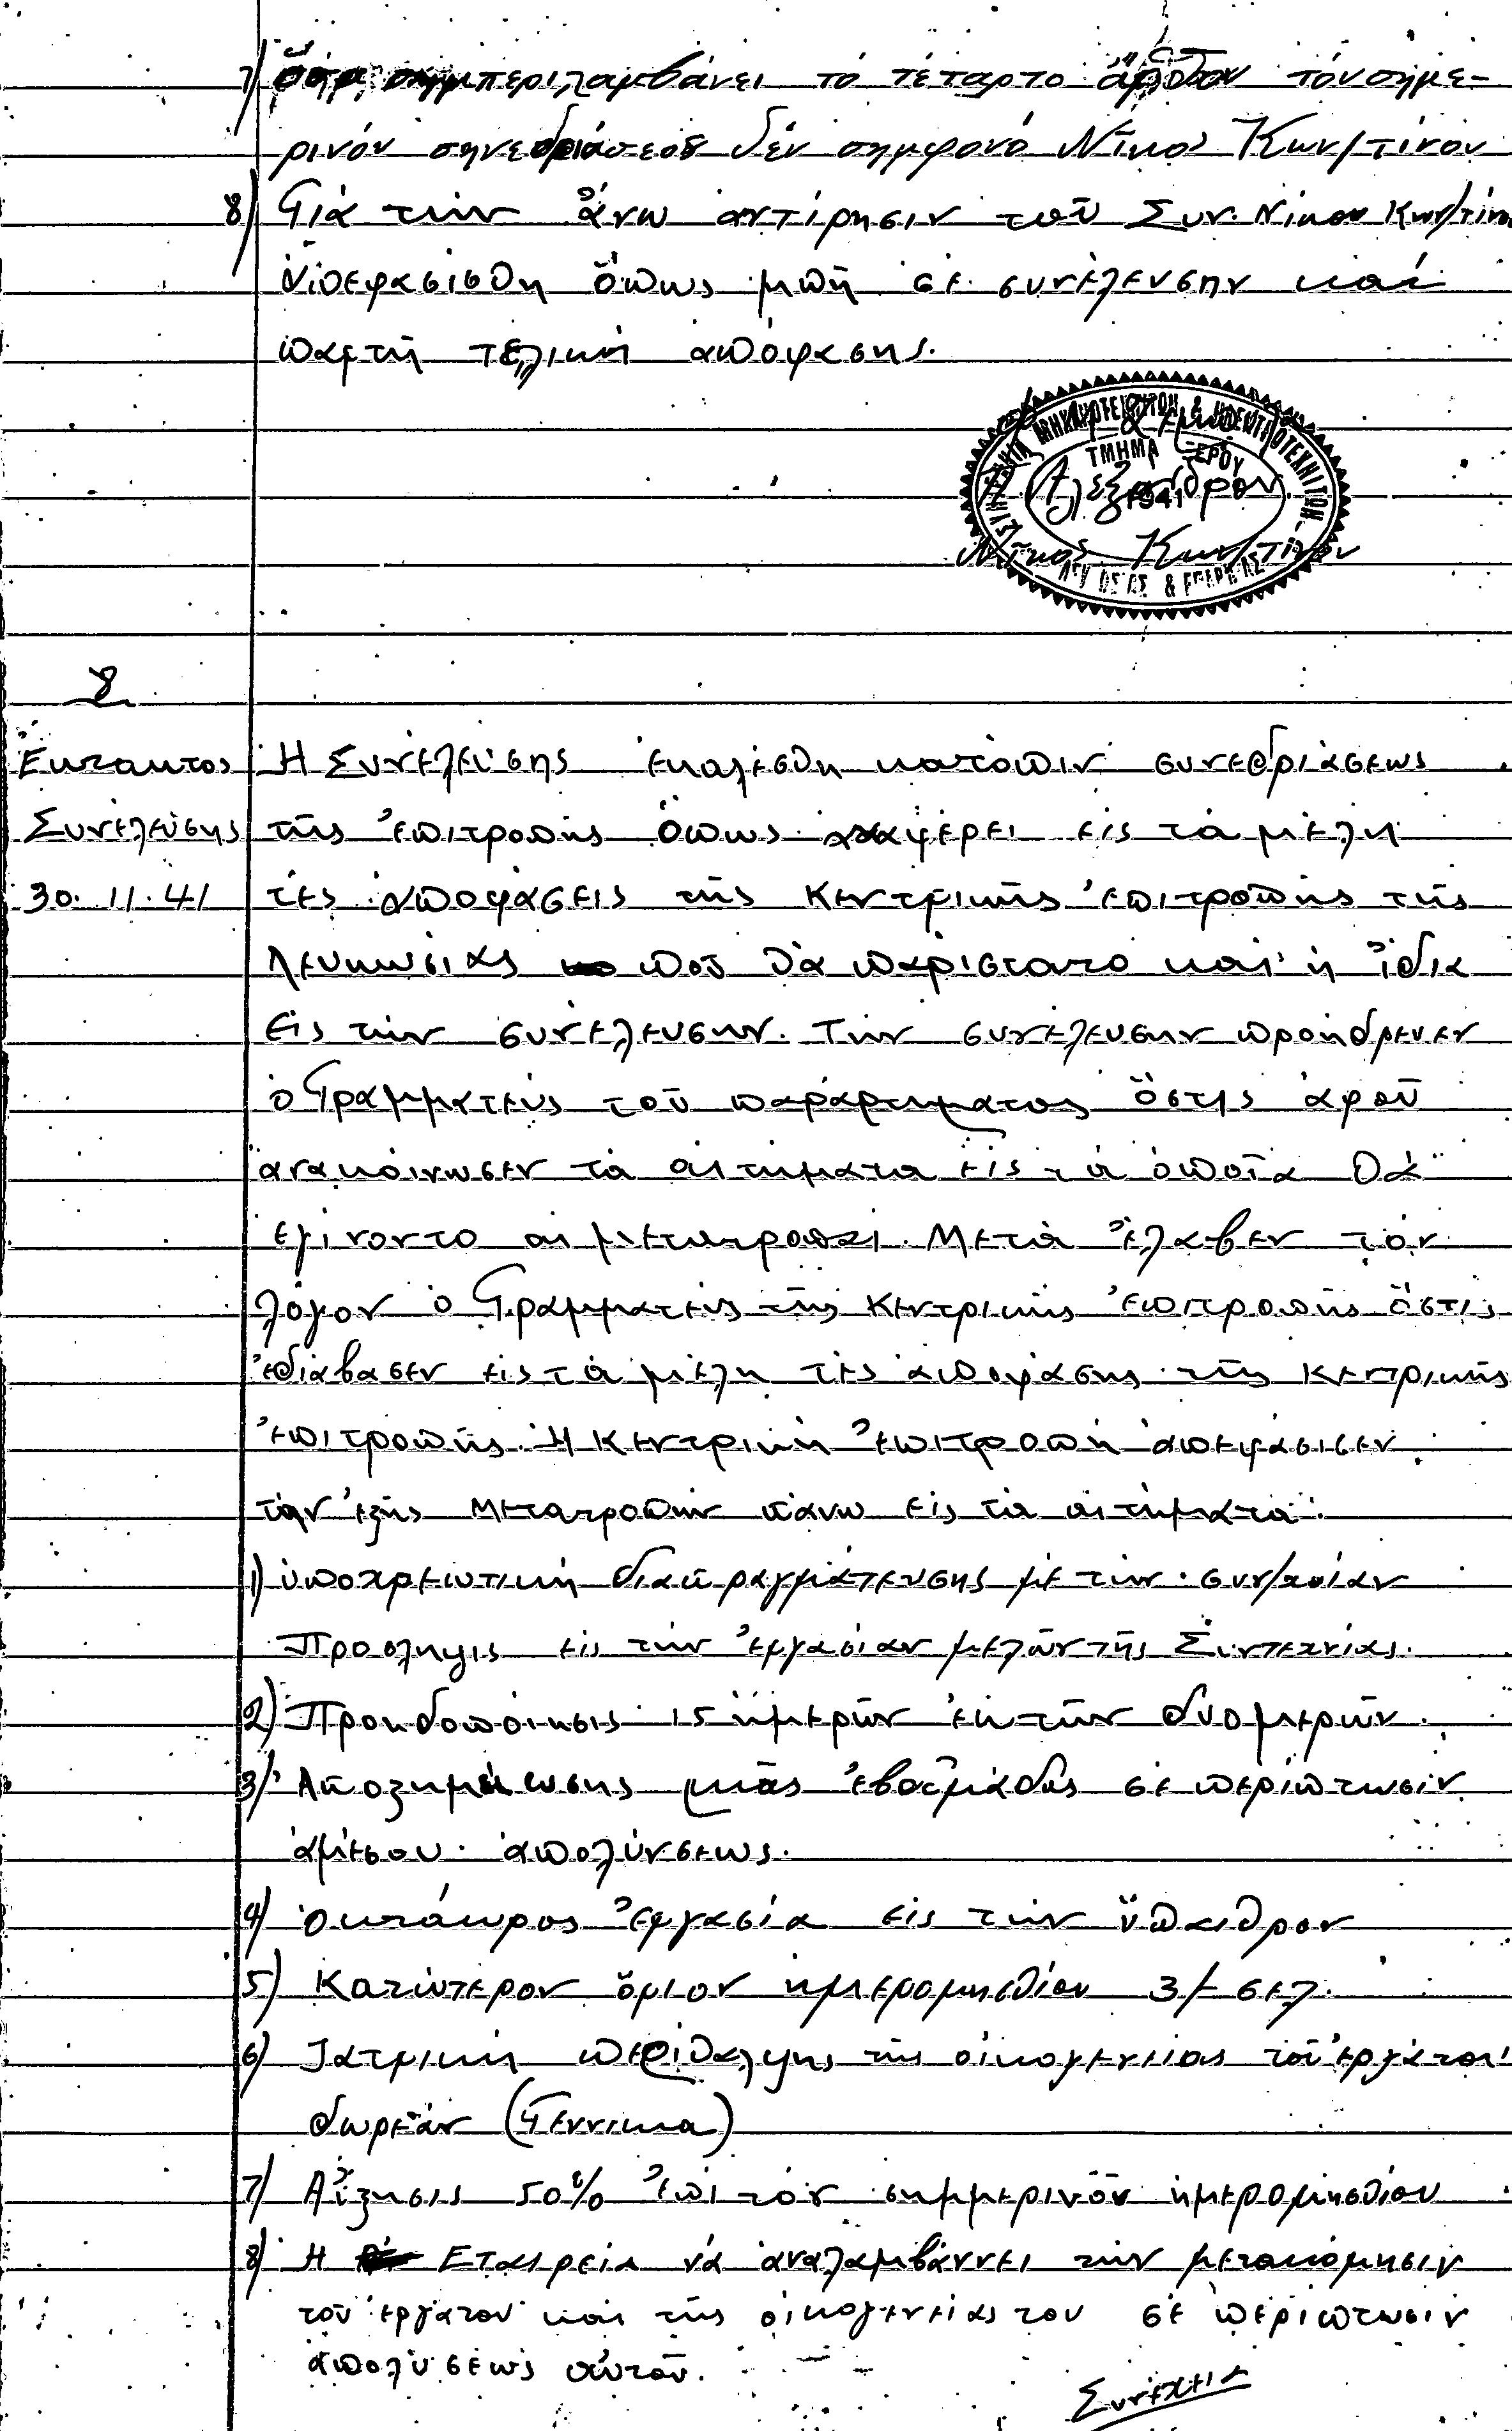 7) ὅσα συμπεριλαμβάνει τό τέταρτο ἄρθον τόν σημε-
ρινόν σηνεδριάσεος δέν σημφονό Νῖκος Κων/τίνου
8) Γιά τήν ἄνω αντίρησιν τοῦ Συν. Νίκου Κων/τίνου
Ἀπεφασίσθη ὅπως μπῆ σέ συνέλευσην καί
παρτῆ τελική απόφασης.
ΤΜΗΜΑ ΞΕΡΟΥ
Π. Ἀλεξάνδρου
1941
Νῖκος Κων/τίνου
8
Εκτακτος
Συνέλεύσης
30.11.41
Η Συνέλεύσης ἐκαλέσθη κατόπιν συνεδριάσεως
τῆς Ἐπιτροπῆς Ὅπως αναφέρει εἰς τά μέλη
τές Αποφάσεις τῆς Κεντρικῆς Ἐπιτροπῆς τῆς
Λευκωσίας ποῦ θά παρίστατο καί ἡ ἴδια
εἰς τήν συνέλευσην. Τήν συνέλευσην προήδρευεν
ὁ Γραμματεύς τοῦ παραρτήματος ὅστις ἀφοῦ
ἀνακοίνωσεν τά αιτήματα εἰς τά ὁποῖα θά
εγίνοντο αι μετατροπαι. Μετά ἔλαβεν τόν
λόγον ὁ Γραμματεύς τῆς Κεντρικῆς Ἐπιτροπῆς ὅστις
ἐδιάβασεν εἰς τά μέλη τές ἀποφάσης τῆς Κεντρικῆς
Ἐπιτροπῆς. Η Κεντρική Ἐπιτροπή ἀπεφάσισεν
τήν ἑξῆς Μετατροπήν πάνω εἰς τά αιτήματα:
1) ὑποχρεωτική διαπραγμάτευσης μέ τήν συν/χνίαν
Προσληψις εἰς τήν ἐργασίαν μελῶν τῆς Συντεχνίας.
2) Προηδοποίησις 15 ἡμερῶν ἐκ τῶν δυο μερῶν.
3) Αποζημείωσης μιᾶς ἑβδομάδος σέ περίπτωσιν
ἀμέσου ἀπολύσεως.
4) Ὀκτάωρος Ἐργασία εἰς τήν ὕπαιθρον
5) Κατώτερον ὅριον ἡμερομησθίου 3/- σελ.
6) Ιατρική περίθαλψης τῆς οἰκογενείας τοῦ ἐργάτου
δωρεάν (Γεννικα)
7) Αὔξησις 50% Ἐπί τόν σημμερινόν ἡμερομησθίου
8) Η Εταιρεία νά ἀναλαμβάννει τήν μετακόμησιν
τοῦ ἐργάτου και τῆς οἰκογενείας του σέ περίπτωσιν
ἀπολύσεως αὐτοῦ.
Συνέχεια